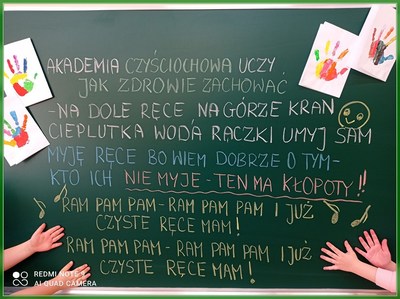 AKADEMIA CZYŚCIOCHOWA UCZY
JAK ZDROWIE ZACHOWAĆ
-NA DOLE RĘCE NA GÓRZE KRAN
CIEPLUTKA WODĄ RACZKI UMYJ SAM
MYJĘ RĘCE BO WIEM DOBRZE O TYM-
KTO ICH NIE MYJE - TEN MA KŁOPOTY!!
RAM PAM PAM - RAM PAM PAM I JUŻ
CZYSTE RĘCE MAM!
RAM PAM PAM - RAM PAM PAM I JUŻ
CZYSTE RĘCE MAM!
REDMI NOTE 9
AI QUAD CAMERA